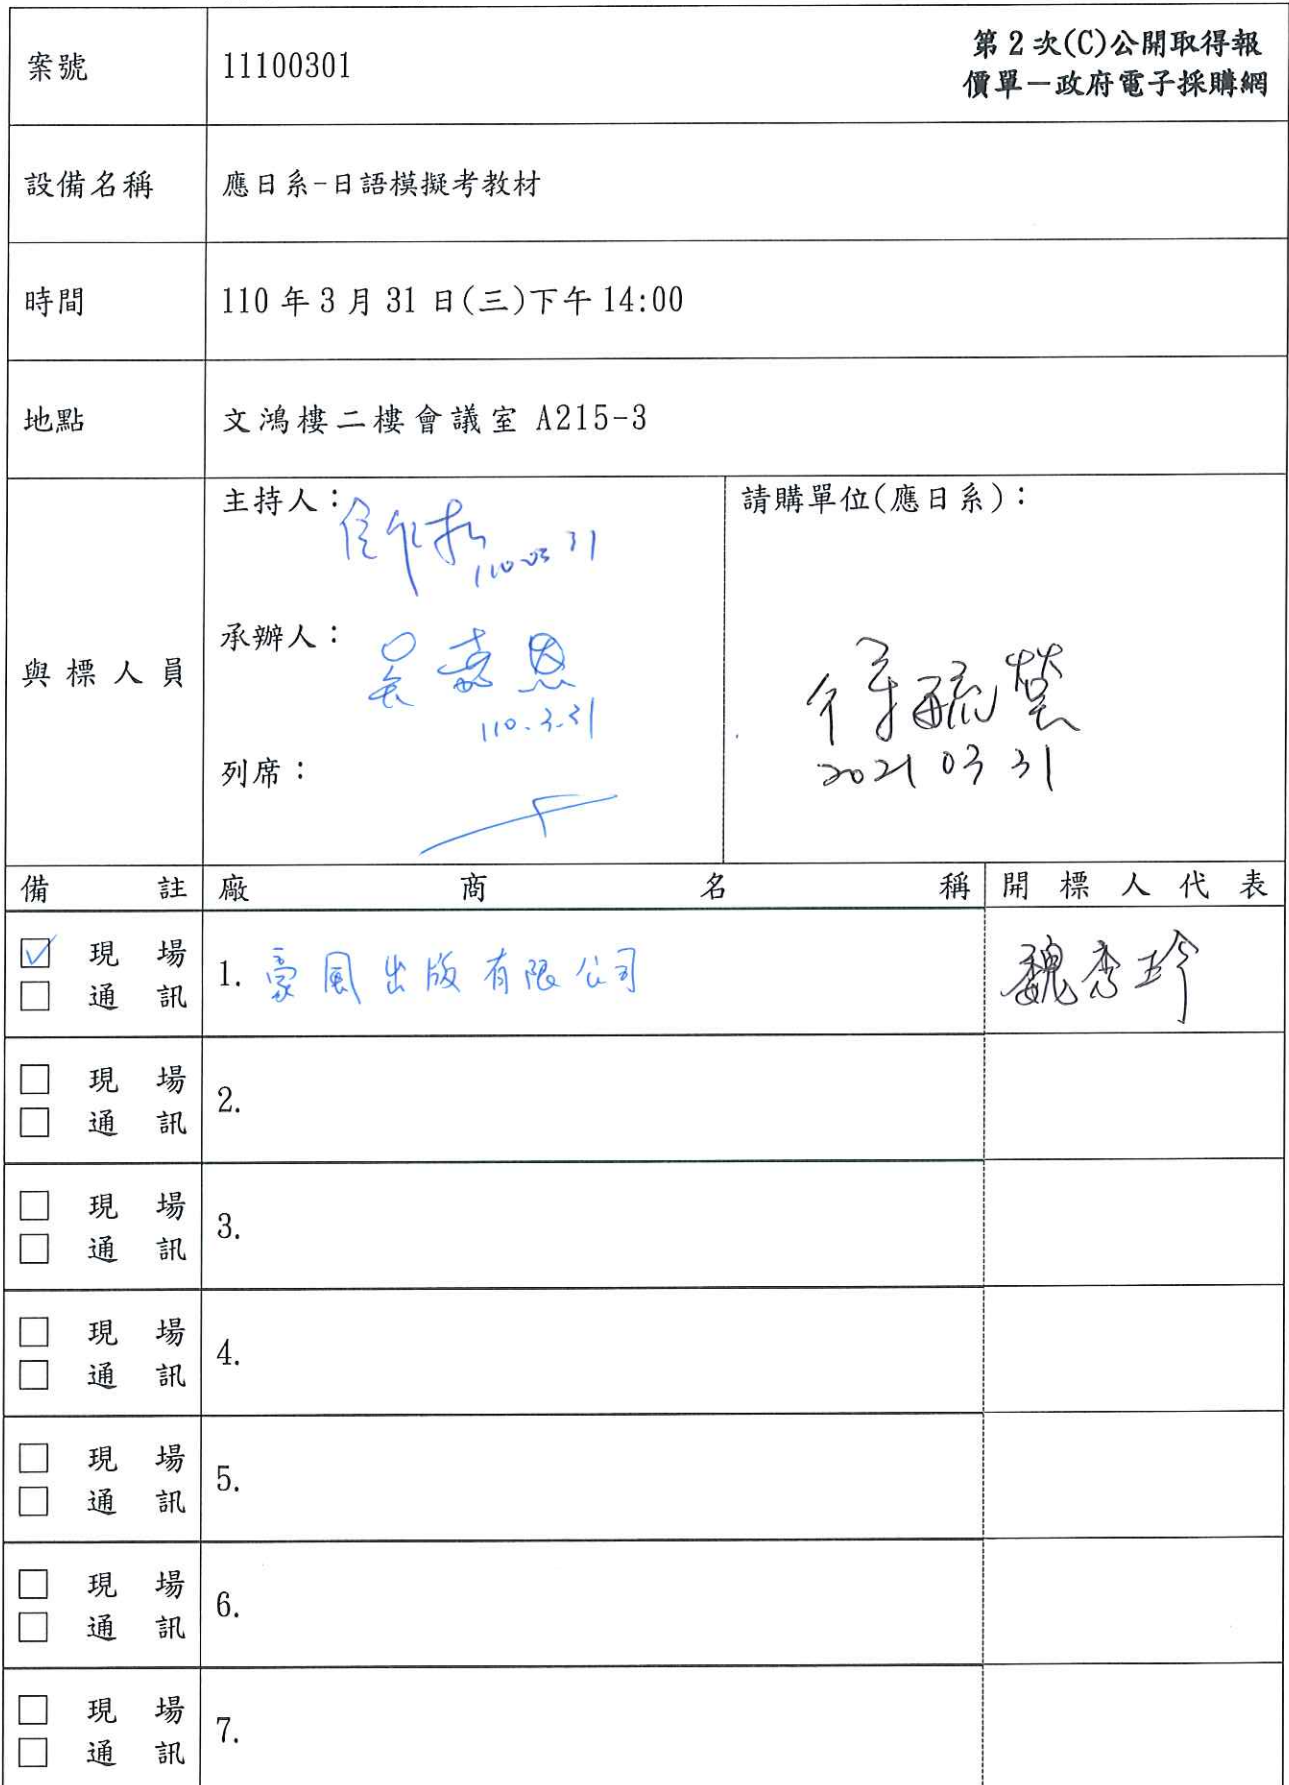 案號 11100301 第2次(C)公開取得報
價單－政府電子採購網
設備名稱 應日系-日語模擬考教材
時間 110年3月31日(三)下午14:00
地點 文鴻樓二樓會議室 A215-3
與標人員
主持人：
110.03 31
承辦人：
吳嘉恩
110.3.31
列席：
請購單位(應日系)：
2021 03 31
備註 廠商名稱 開標人代表
☑ 現場
□ 通訊
1. 豪風出版有限公司
魏秀玲
□ 現場
□ 通訊
2.
□ 現場
□ 通訊
3.
□ 現場
□ 通訊
4.
□ 現場
□ 通訊
5.
□ 現場
□ 通訊
6.
□ 現場
□ 通訊
7.